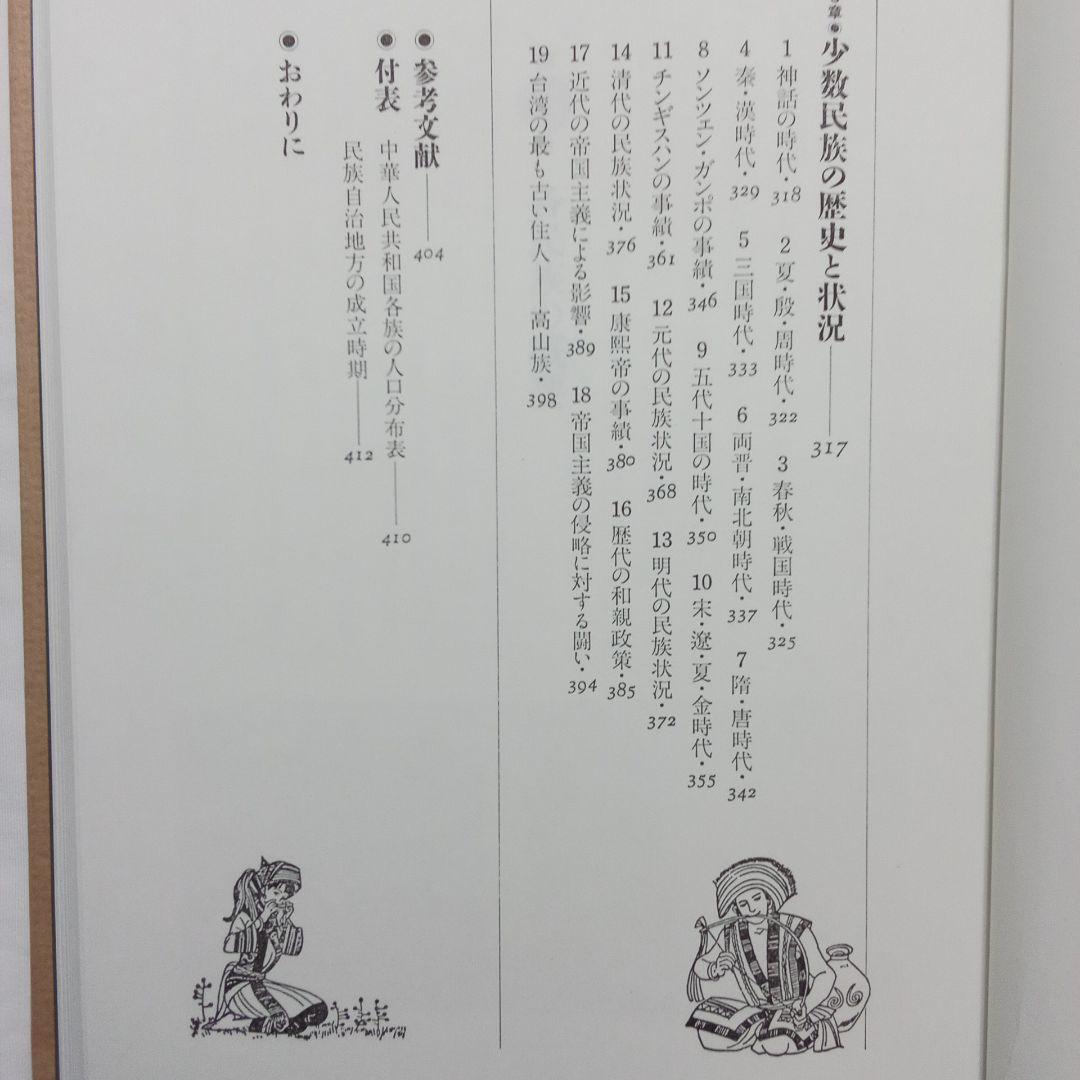 章●少数民族の歴史と状況——317
1 神話の時代・318 2 夏・殷・周時代・322 3 春秋・戦国時代・325
4 秦・漢時代・329 5 三国時代・333 6 両晋・南北朝時代・337 7 隋・唐時代・342
8 ソンツェン・ガンポの事績・346 9 五代十国の時代・350 10 宋・遼・夏・金時代・355
11 チンギスハンの事績・361 12 元代の民族状況・368 13 明代の民族状況・372
14 清代の民族状況・376 15 康熙帝の事績・380 16 歴代の和親政策・385
17 近代の帝国主義による影響・389 18 帝国主義の侵略に対する闘い・394
19 台湾の最も古い住人——高山族・398
●参考文献——404
●付表 中華人民共和国各族の人口分布表——410
民族自治地方の成立時期——412
●おわりに